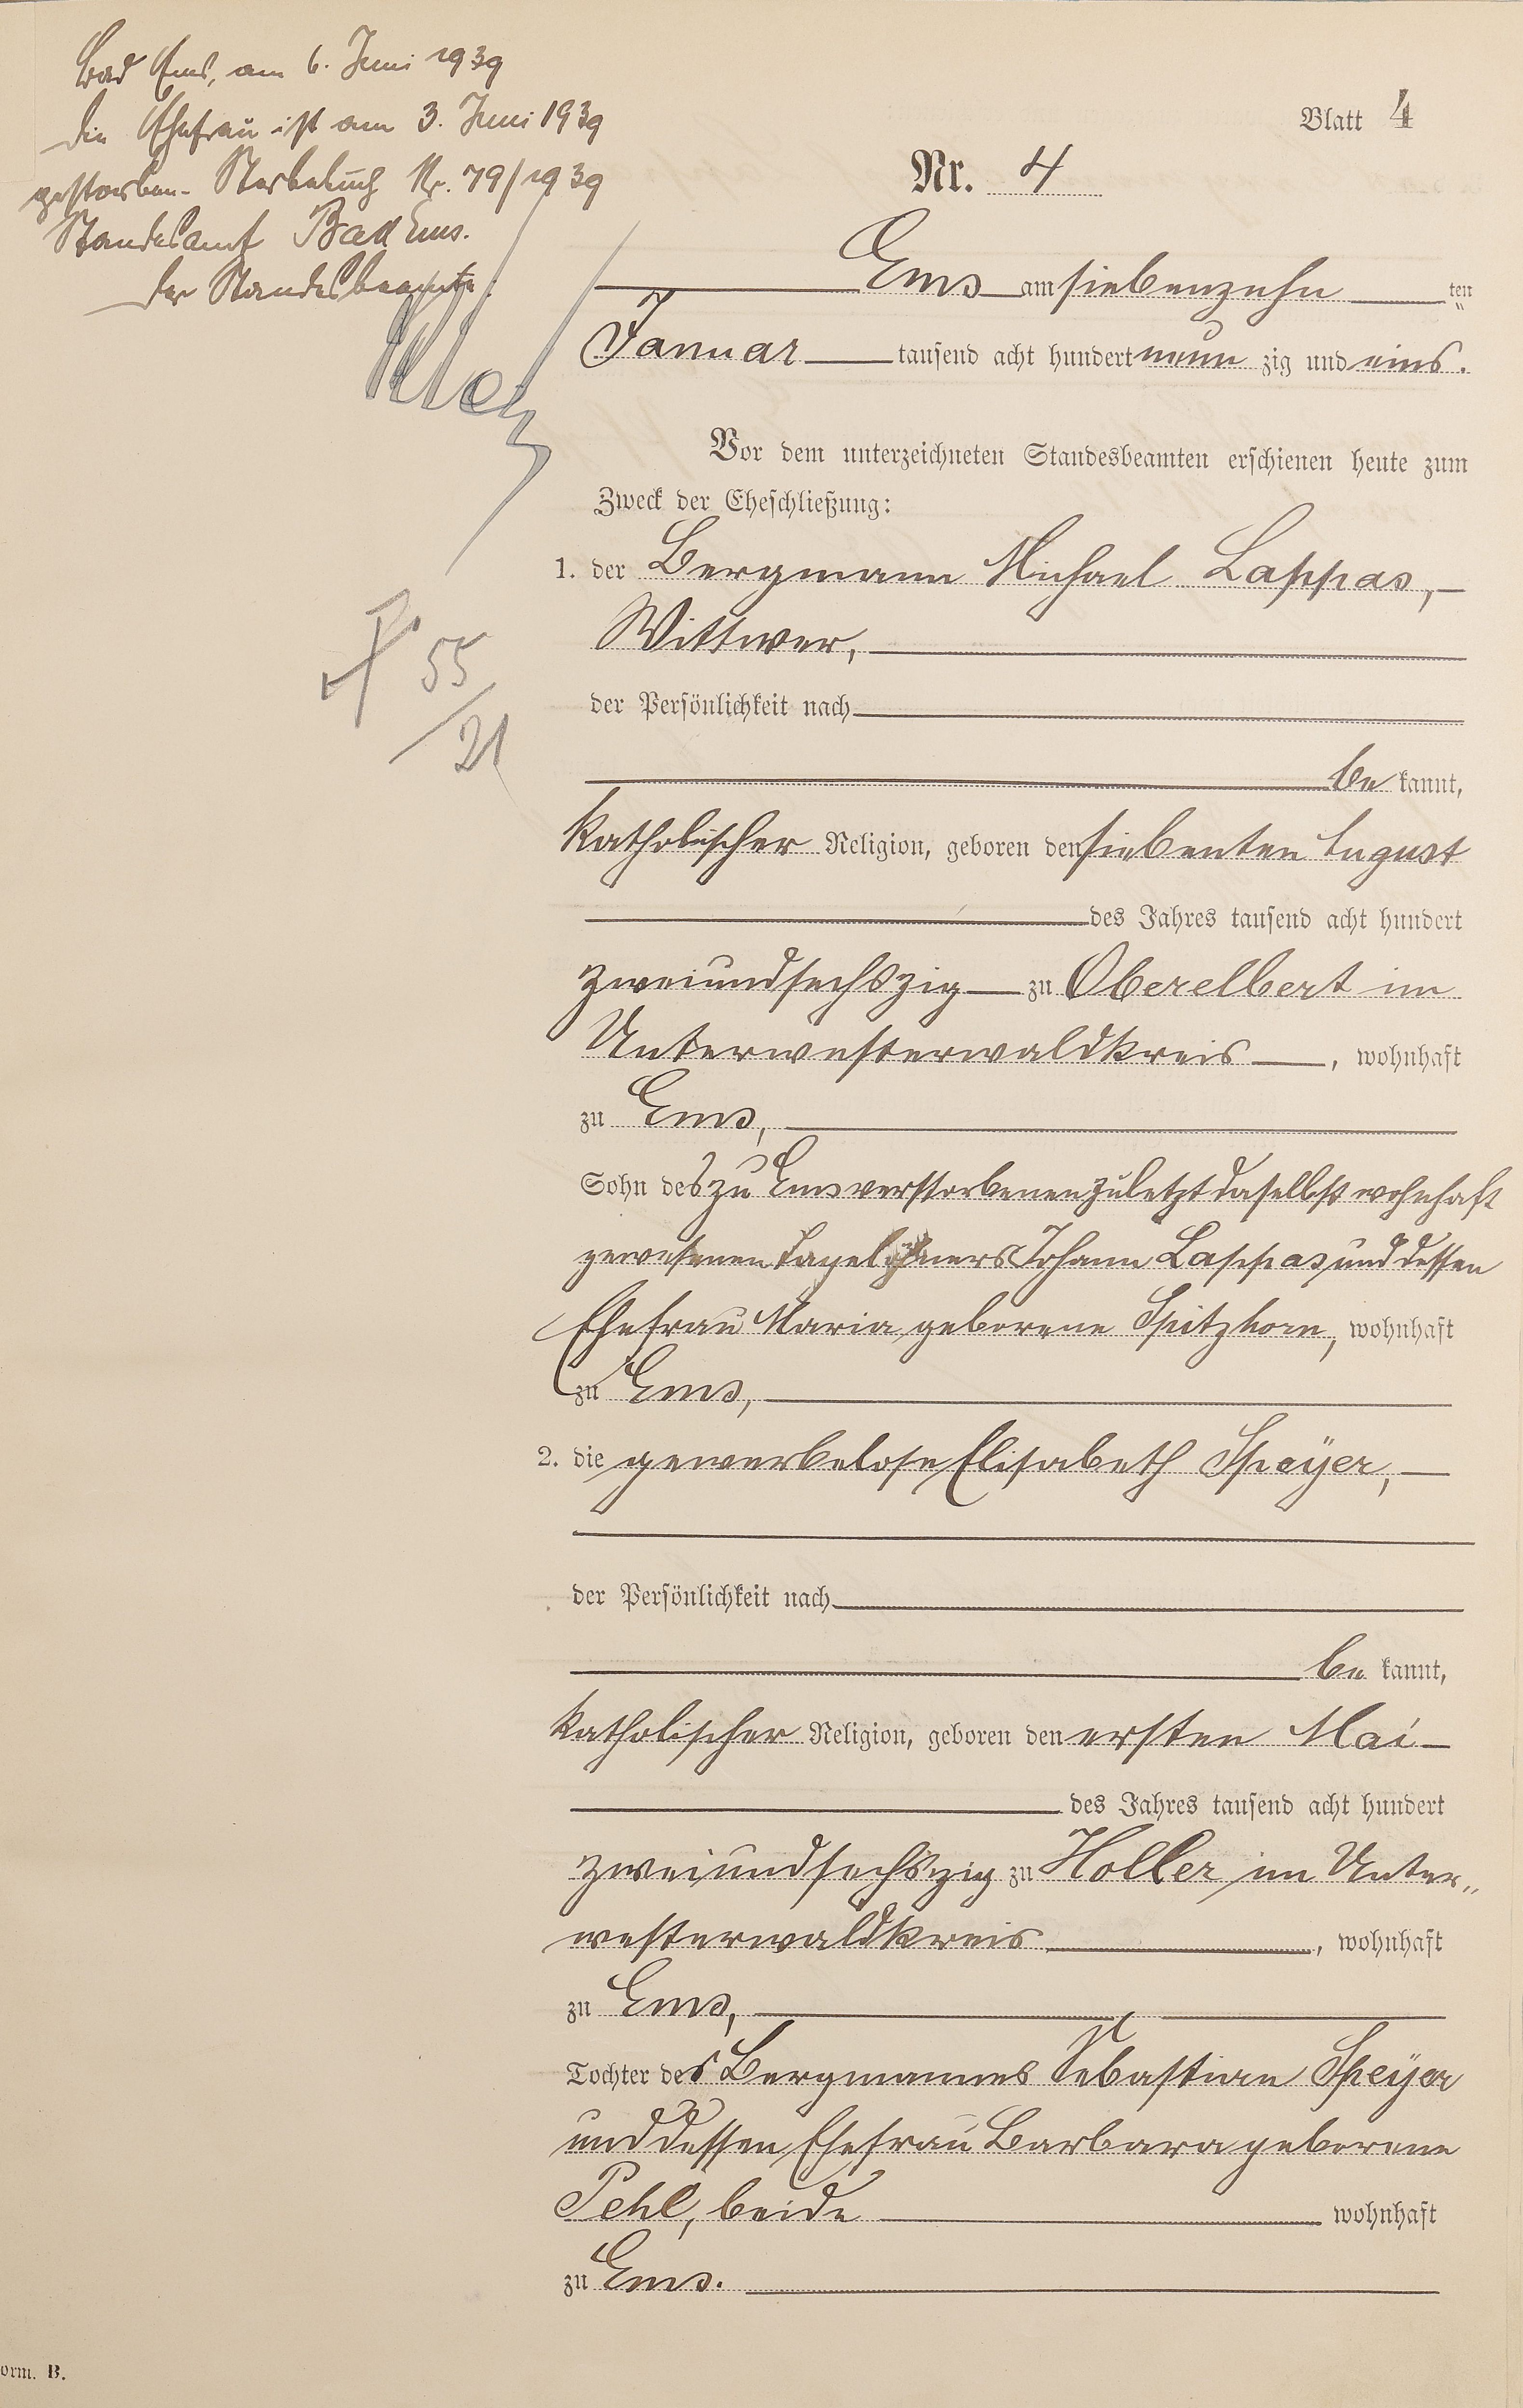 Bad Ems, am 6. Juni 1939
Die Ehefrau ist am 3. Juni 1939
gestorben - Sterbebuch Nr. 79/1939
Standesamt Bad Ems.
Der Standesbeamte:
55
/21
Blatt 4
Nr. 4
Ems am siebenzehn ten
Januar tausend acht hundert neun zig und eins.
Vor dem unterzeichneten Standesbeamten erschienen heute zum
Zweck der Eheschließung:
1. der Bergmann Michael Lappas,
Wittwer,
der Persönlichkeit nach
be kannt,
katholischer Religion, geboren den siebenten August
des Jahres tausend acht hundert
zweiundsechszig zu Oberelbert im
Unterwesterwaldkreis, wohnhaft
zu Ems,
Sohn des zu Ems verstorbenen zuletzt daselbst wohnhaft
gewesenen Tagelöhners Johann Lappas und dessen
Ehefrau Maria geborene Spitzhorn, wohnhaft
zu Ems,
2. die gewerbelose Elisabeth Speÿer,
der Persönlichkeit nach
be kannt,
katholischer Religion, geboren den ersten Mai
des Jahres tausend acht hundert
zweiundsechszig zu Holler im Unter„
westerwaldkreis, wohnhaft
zu Ems,
Tochter des Bergmannes Sebastian Speÿer
und dessen Ehefrau Barbara geborene
Pehl, beide wohnhaft
zu Ems.
orm. B.